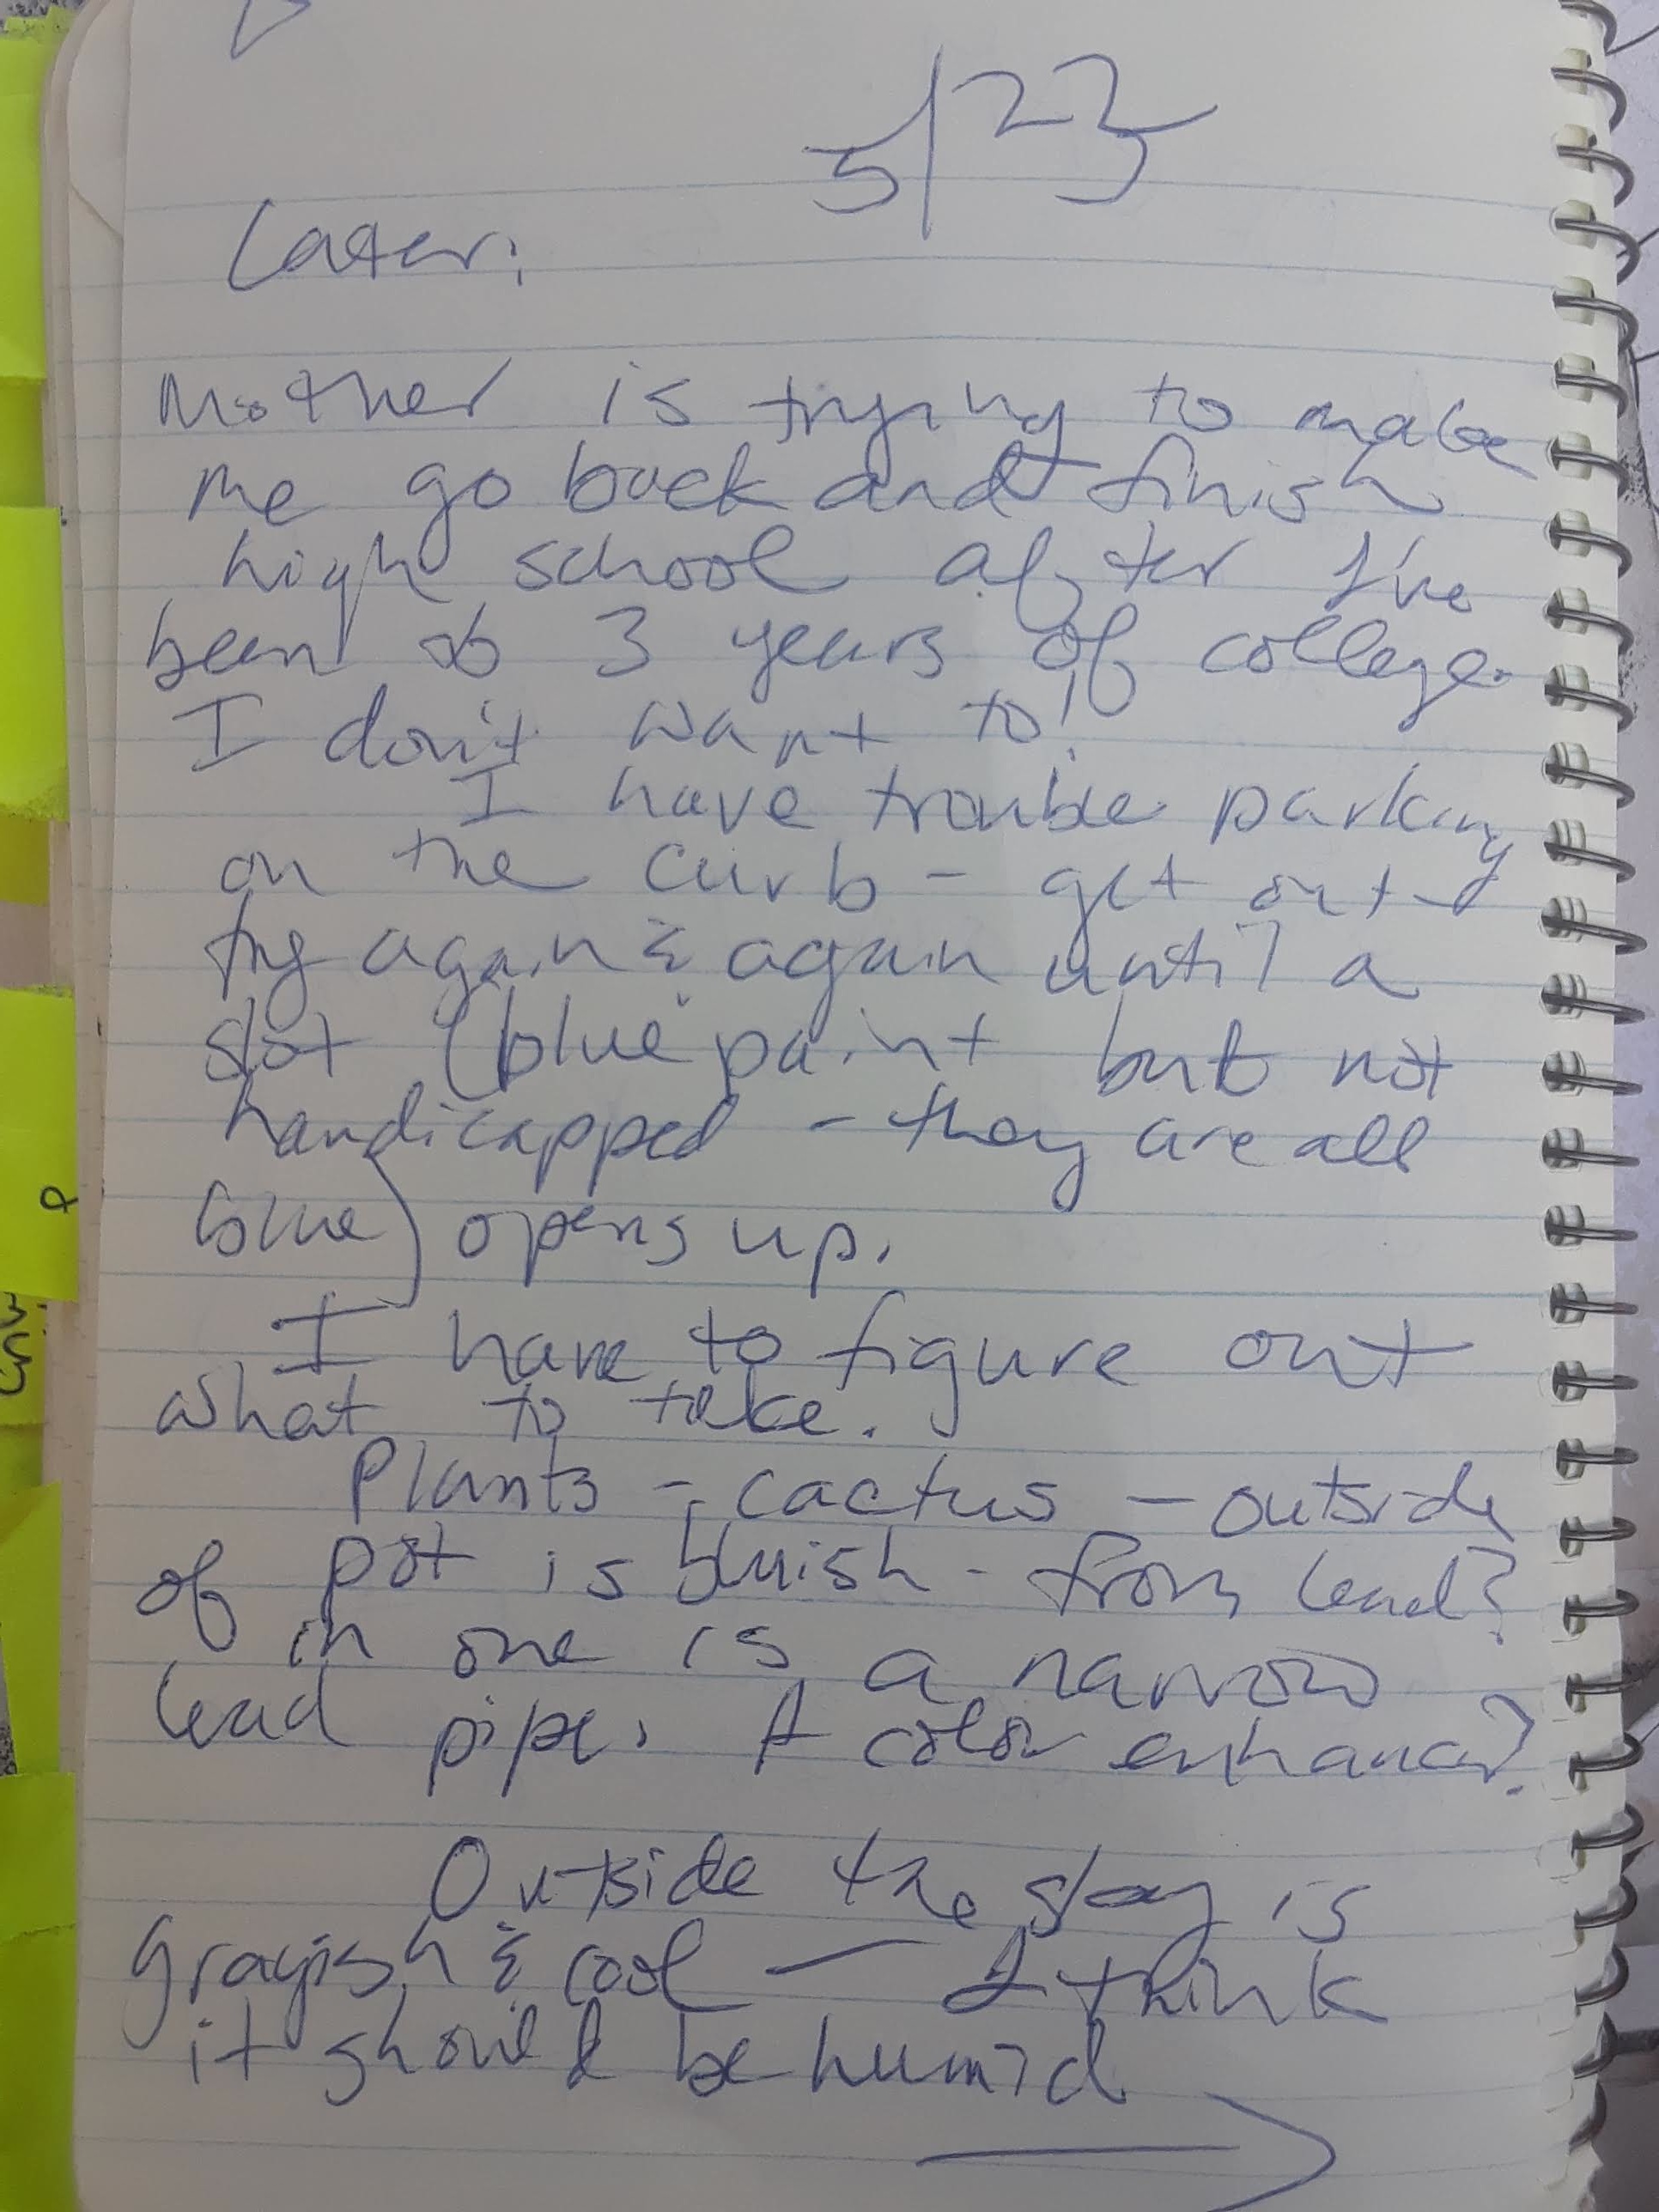 5/23
Later:
Mother is trying to make
me go back and finish
high school after I've
been 3 years of college.
I don't want to!
I have trouble parking
on the curb - get out -
try again & again until a
slot (blue paint but not
handicapped - they are all
blue) opens up.
I have to figure out
what to take.
Plants - cactus - outside
of pot is bluish - from lead?
in one is a narrow
lead pipe. A color enhancer?
Outside the sky is
grayish & cool — I think
it should be humid